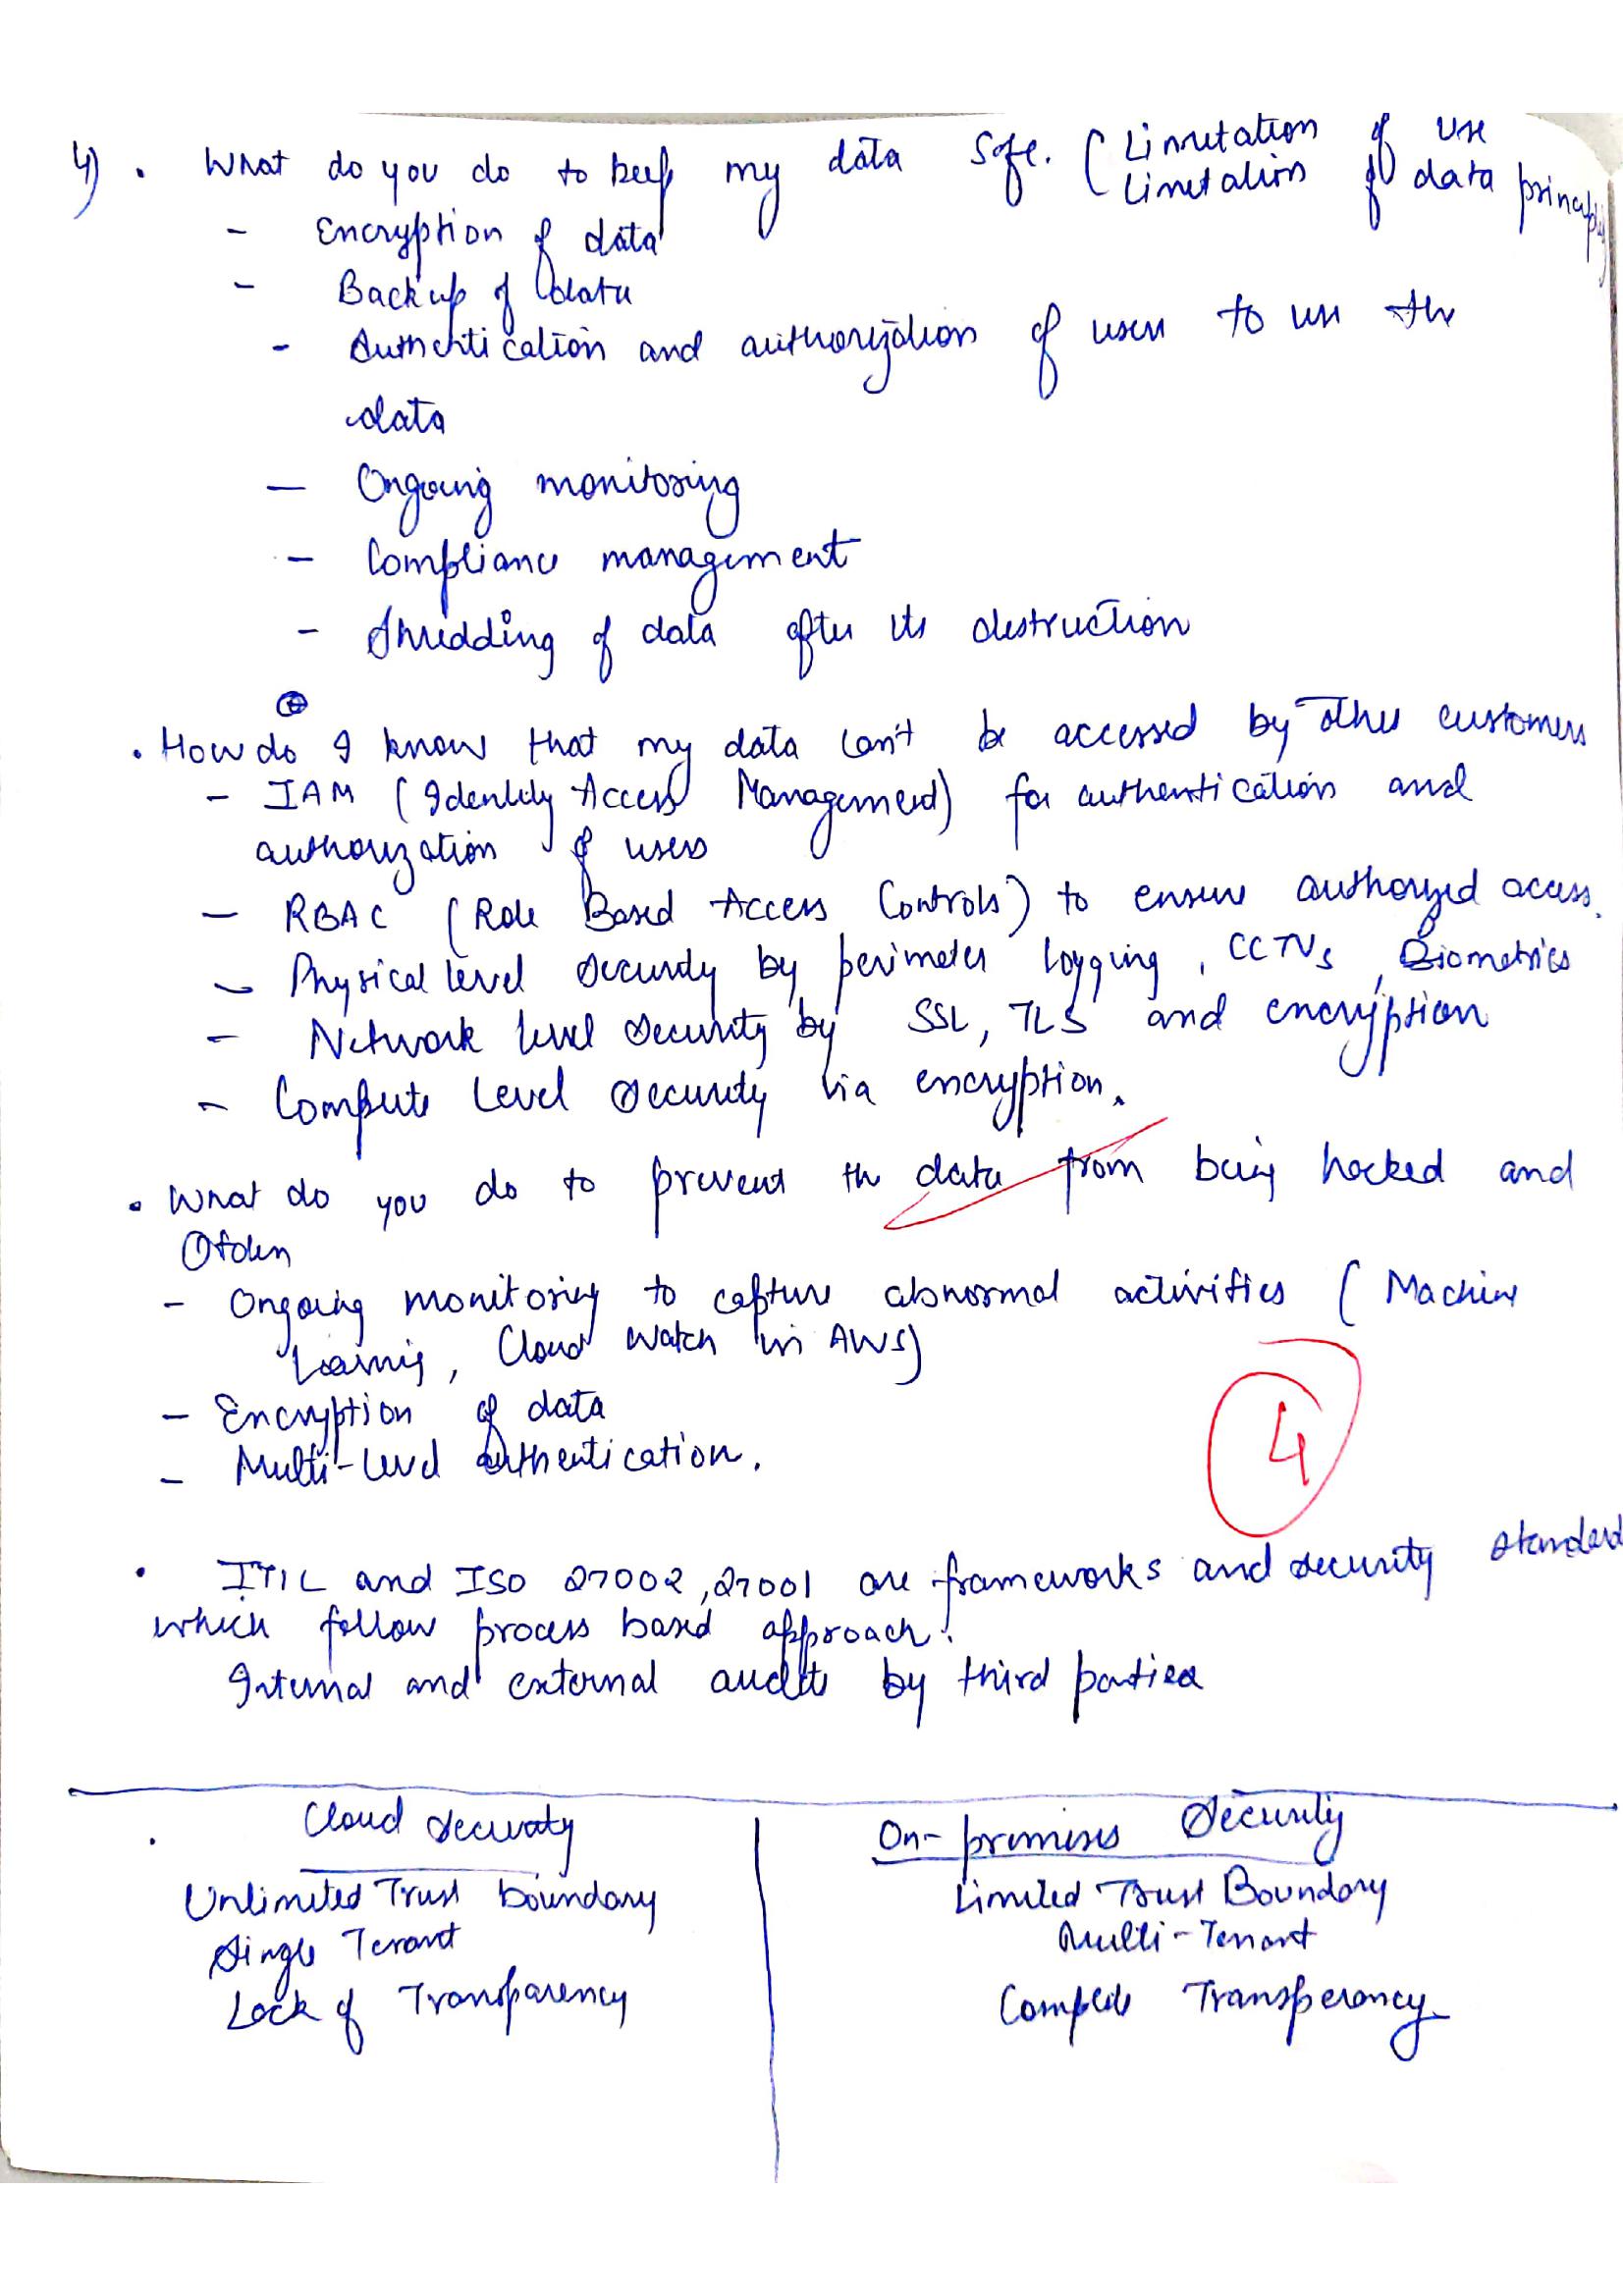 4) . What do you do to keep my data safe. ( Limitation of use
Limitation of data principles)
- Encryption of data
- Backup of data
- Authentication and authorization of users to use the
data
- Ongoing monitoring
- Compliance management
- Shredding of data after its destruction
. How do I know that my data can't be accessed by other customers
- IAM (Identity Access Management) for authentication and
authorization of users
- RBAC (Role Based Access Controls) to ensure authorized access.
- Physical level security by perimeter logging, CCTVs, Biometrics
- Network level security by SSL, TLS and encryption
- Compute Level security via encryption.
. What do you do to prevent the data from being hacked and
stolen
- Ongoing monitoring to capture abnormal activities ( Machine
Learning, Cloud Watch in AWS)
- Encryption of data
- Multi-level authentication.
4
. ITIL and ISO 27002, 27001 are frameworks and security standard
which follow process based approach.
Internal and external audits by third parties
. Cloud security
On-premises Security
Unlimited Trust boundary
Limited Trust Boundary
Single Tenant
Multi-Tenant
Lack of Transparency
Complete Transperancy